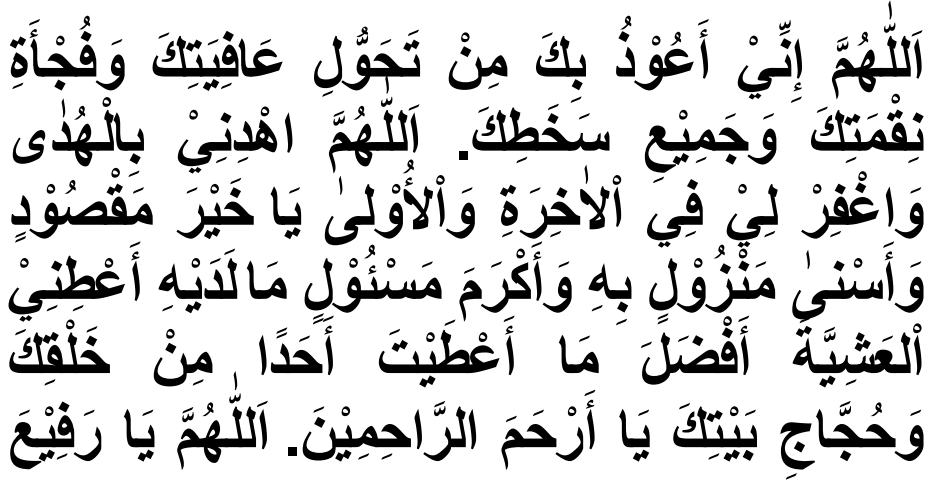 اَللّٰهُمَّ إِنِّيْ أَعُوْذُ بِكَ مِنْ تَحَوُّلِ عَافِيَتِكَ وَفُجْأَةِ
نِقْمَتِكَ وَجَمِيْعِ سَخَطِكَ. اَللّٰهُمَّ اهْدِنِيْ بِالْهُدٰى
وَاغْفِرْ لِيْ فِي اْلاٰخِرَةِ وَاْلأُوْلىٰ يَا خَيْرَ مَقْصُوْدٍ
وَأَسْنىٰ مَنْزُوْلٍ بِهِ وَأَكْرَمَ مَسْئُوْلٍ مَالَدَيْهِ أَعْطِنِيْ
اْلعَشِيَّةَ أَفْضَلَ مَا أَعْطَيْتَ أَحَدًا مِنْ خَلْقِكَ
وَحُجَّاجِ بَيْتِكَ يَا أَرْحَمَ الرَّاحِمِيْنَ. اَللّٰهُمَّ يَا رَفِيْعَ